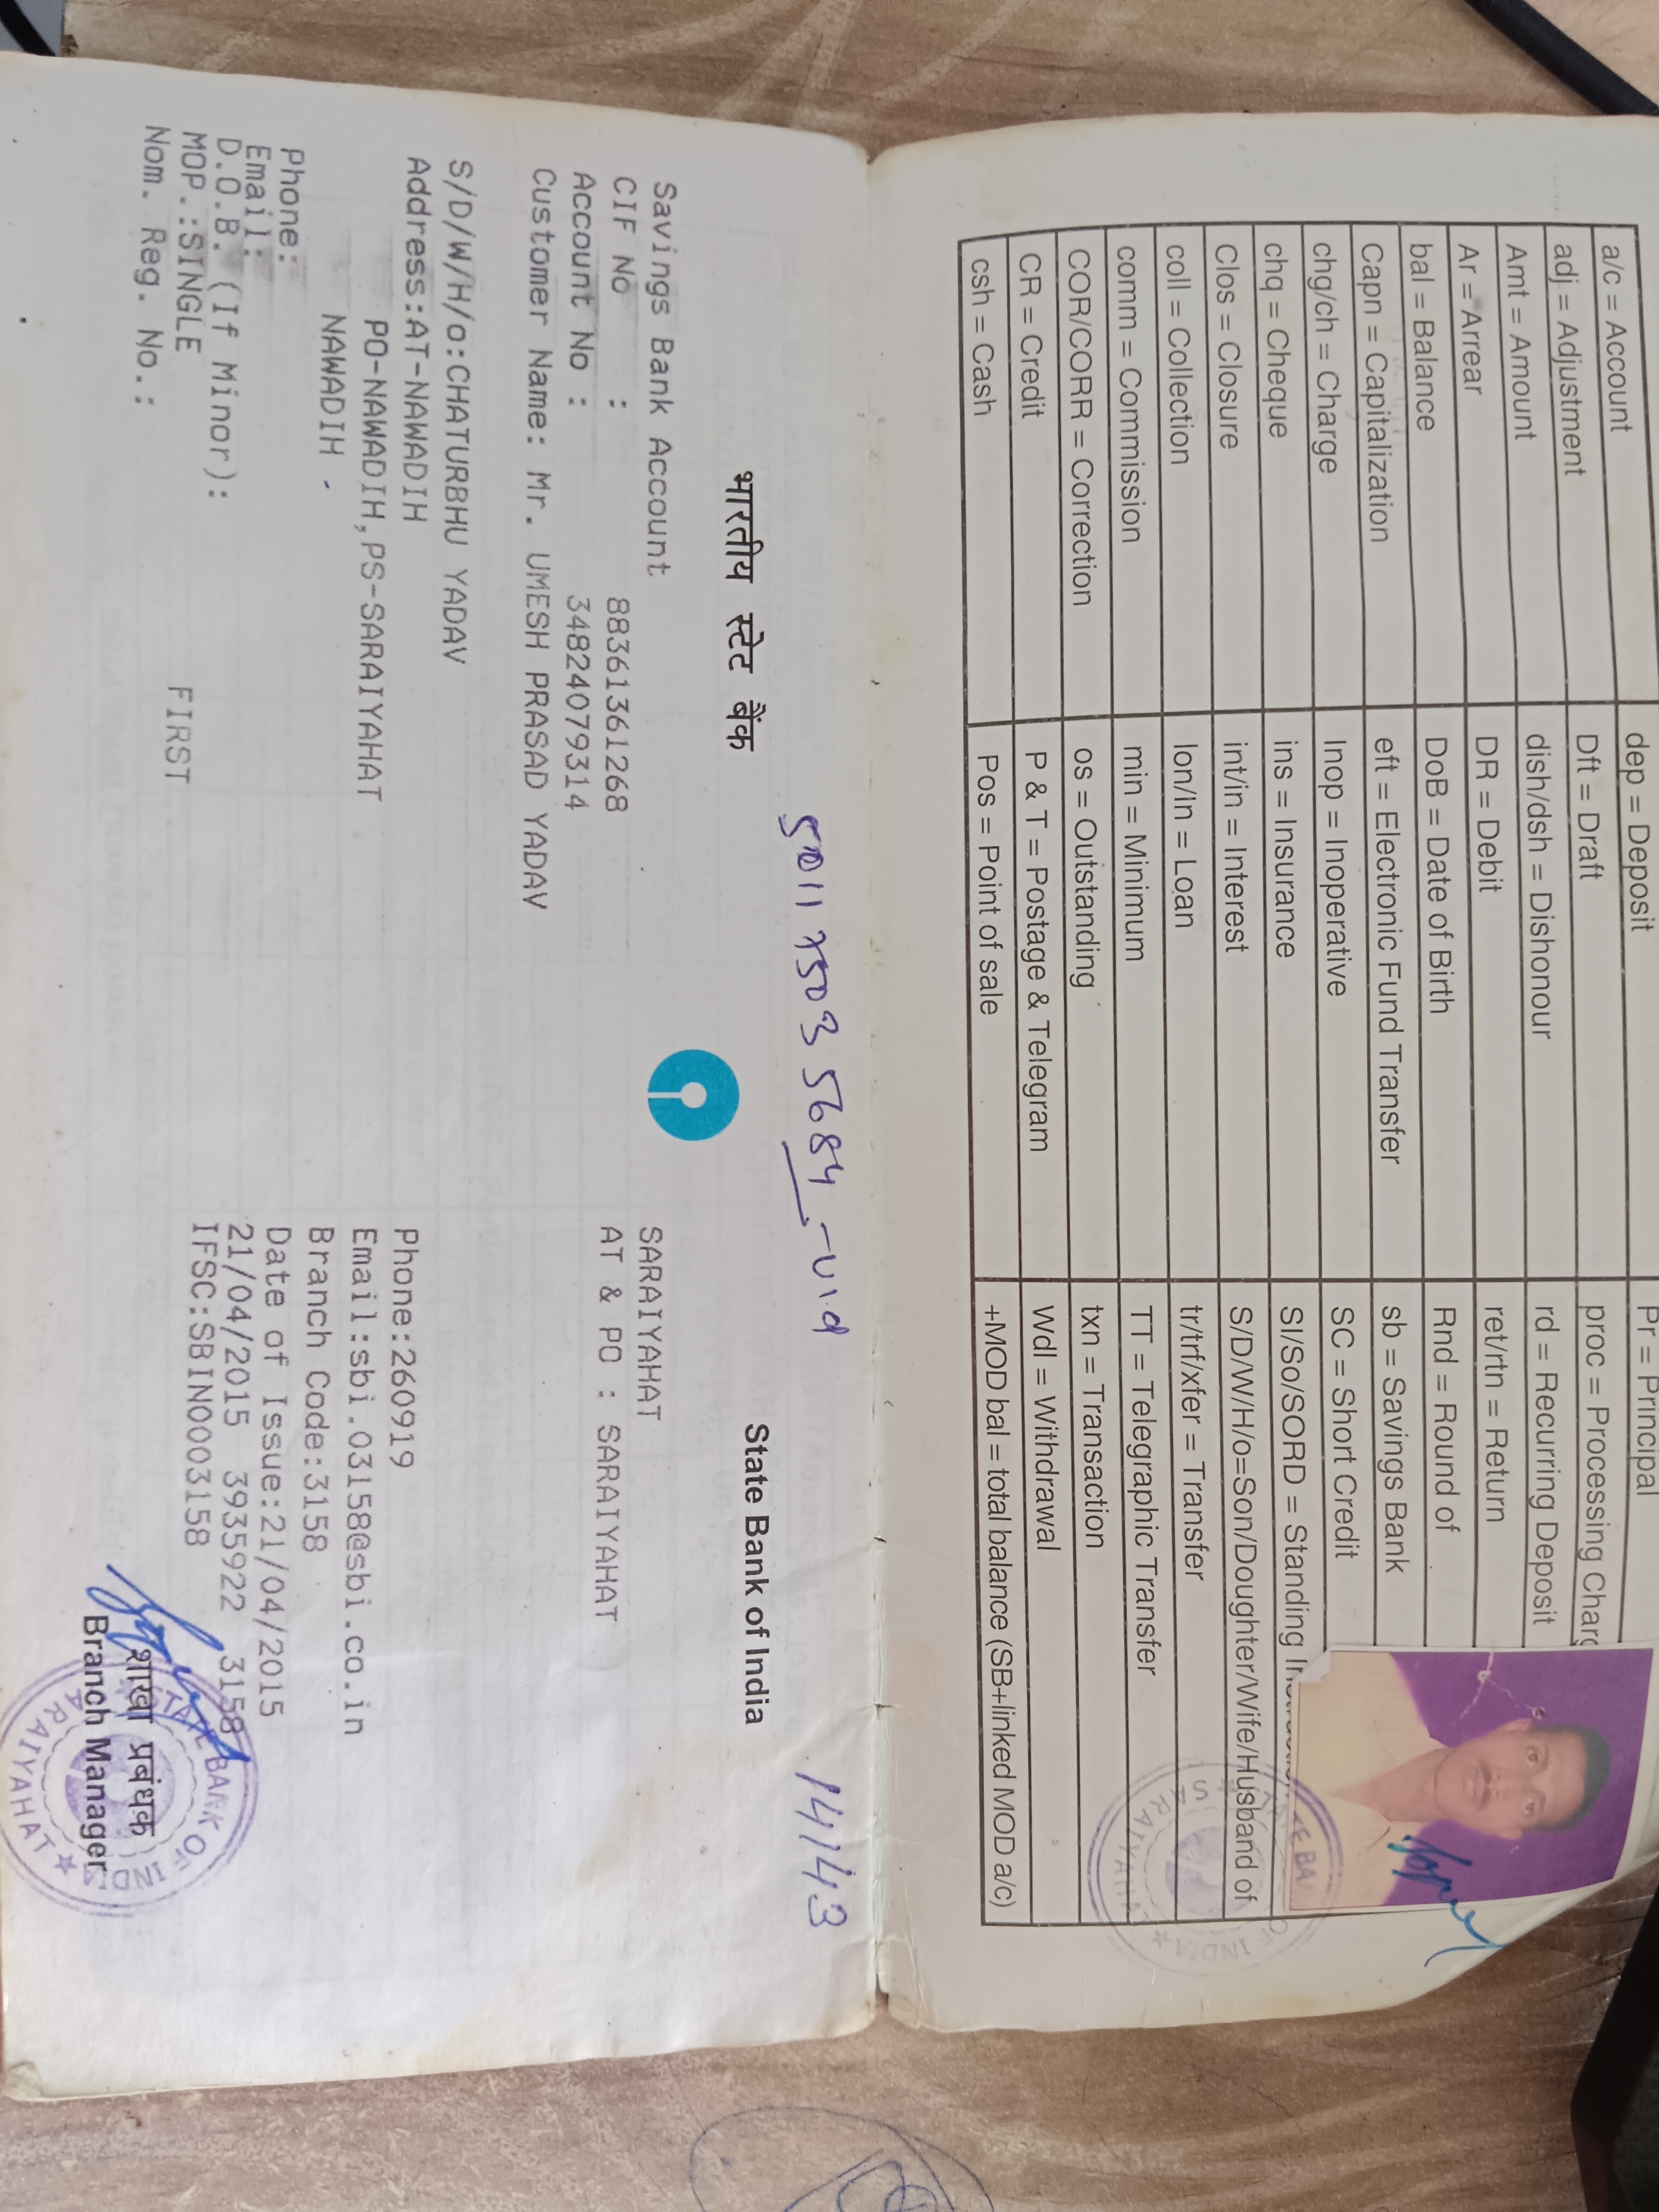 a/c = Account
dep = Deposit
Pr = Principal
adj = Adjustment
Dft = Draft
proc = Processing
Amt = Amount
dish/dsh = Dishonour
rd = Recurring Deposit
Ar = Arrear
DR = Debit
ret/rtn = Return
bal = Balance
DoB = Date of Birth
Rnd = Round of
Capn = Capitalization
eft = Electronic Fund Transfer
sb = Savings Bank
chg/ch = Charge
Inop = Inoperative
SC = Short Credit
chq = Cheque
ins = Insurance
SI/So/SORD = Standing
Clos = Closure
int/in = Interest
S/D/W/H/o=Son/Doughter/Wife/Husband of
coll = Collection
lon/ln = Loan
tr/trf/xfer = Transfer
comm = Commission
min = Minimum
TT = Telegraphic Transfer
COR/CORR = Correction
os = Outstanding
txn = Transaction
CR = Credit
P & T = Postage & Telegram
Wdl = Withdrawal
csh = Cash
Pos = Point of sale
+MOD bal = total balance (SB+linked MOD a/c)
5011 7503 5684 - uid
14143
भारतीय स्टेट बैंक
State Bank of India
Savings Bank Account
SARAIYAHAT
CIF No : 88361361268
AT & PO : SARAIYAHAT
Account No : 34824079314
Customer Name: Mr. UMESH PRASAD YADAV
S/D/W/H/o:CHATURBHU YADAV
Address:AT-NAWADIH
Phone:260919
PO-NAWADIH,PS-SARAIYAHAT
Email:sbi.03158@sbi.co.in
NAWADIH
Branch Code:3158
Phone:
Date of Issue:21/04/2015
Email:
21/04/2015 3935922 3158
D.O.B. (If Minor):
IFSC:SBIN0003158
MOP.:SINGLE
FIRST
Nom. Reg. No.:
शाखा प्रबंधक
Branch Manager
STATE BANK OF INDIA
SARAIYAHAT